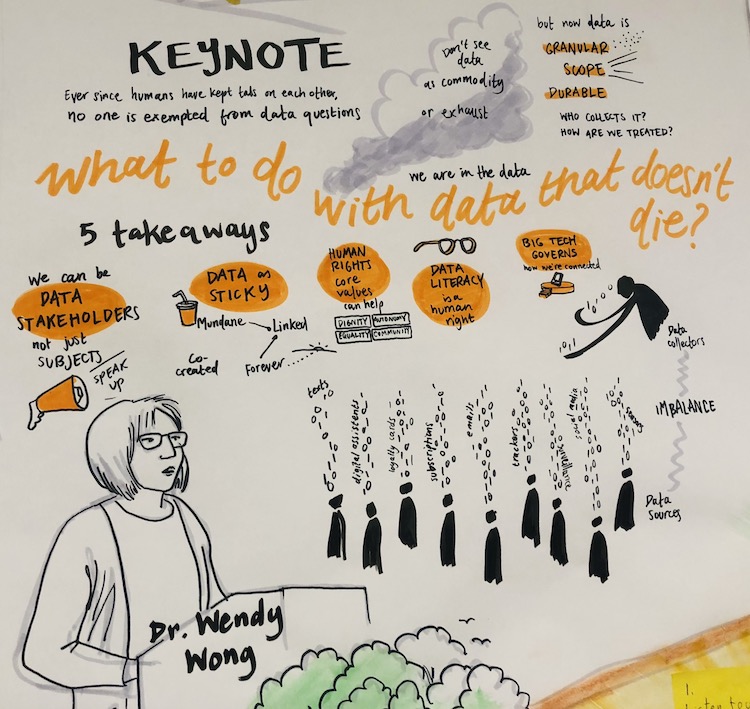 KEYNOTE
Ever since humans have kept tabs on each other,
no one is exempted from data questions
Don't see
data
as commodity
or exhaust
but now data is
GRANULAR
SCOPE
DURABLE
WHO COLLECTS IT?
HOW ARE WE TREATED?
we are in the data
what to do
with data that doesn't
die?
5 takeaways
we can be
DATA
STAKEHOLDERS
not just
SUBJECTS
SPEAK
UP
DATA as
STICKY
Mundane
Linked
Co-
created
Forever
HUMAN
RIGHTS
core
values
can help
DIGNITY AUTONOMY
EQUALITY COMMUNITY
DATA
LITERACY
is a
human
right
BIG TECH
GOVERNS
how we're connected
Data
collectors
IMBALANCE
Data
Sources
texts
digital assistents
loyalty cards
subscriptions
emails
trackers
surveillance
social media
sensors
Dr. Wendy
Wong
1.